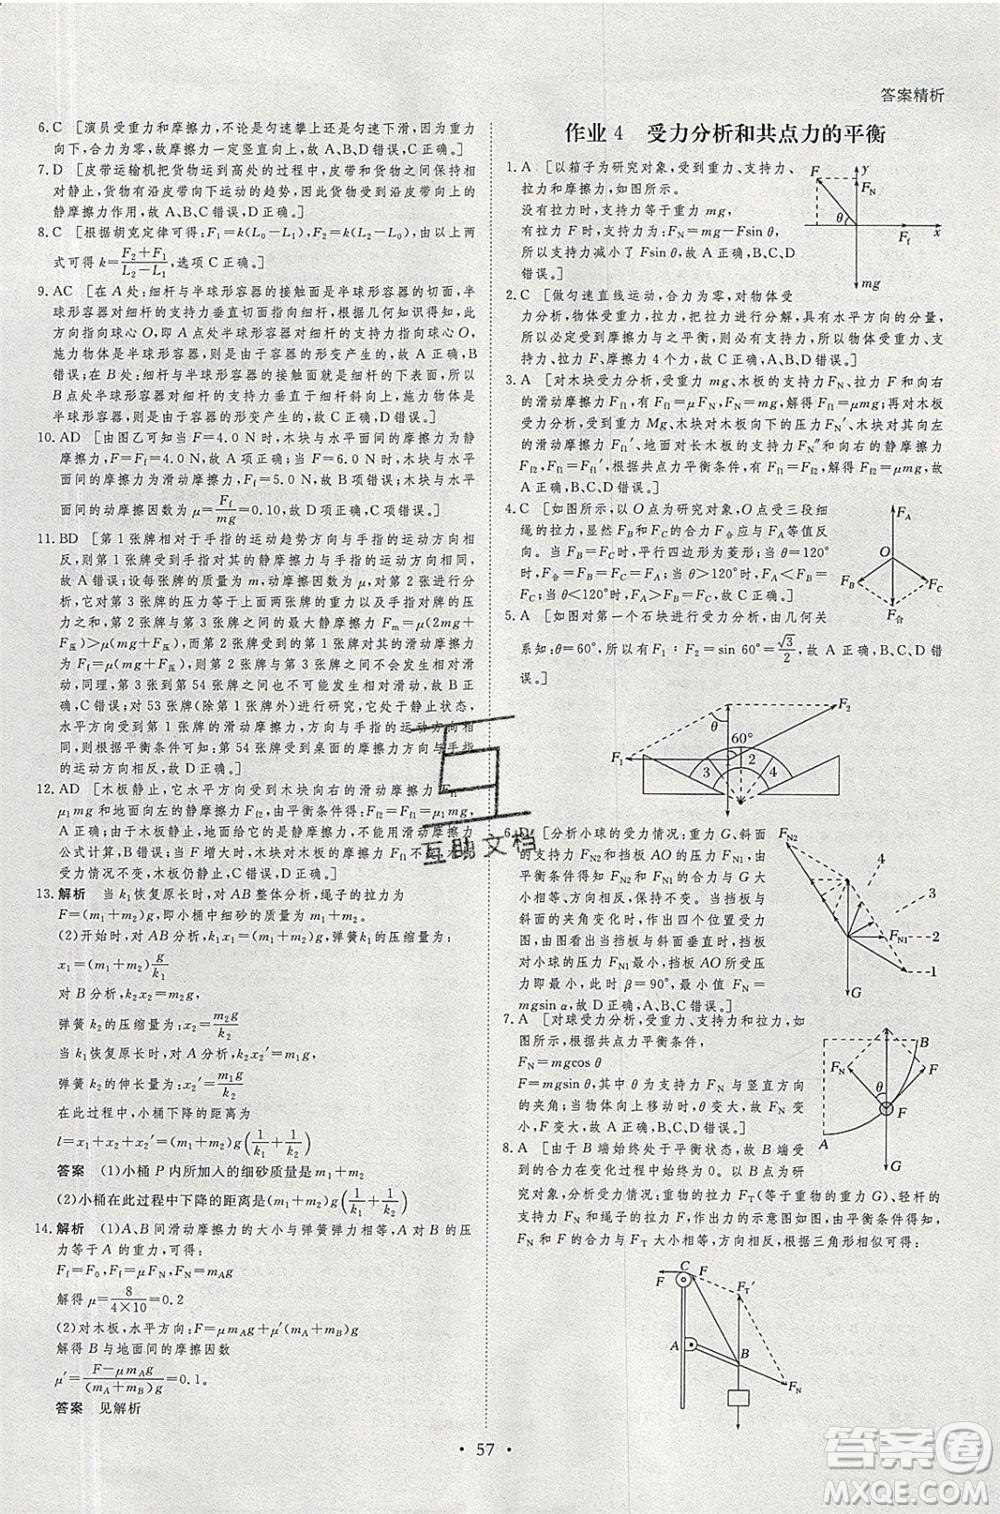 答案精析
6.C [演员受重力和摩擦力,不论是匀速攀上还是匀速下滑,因为重力
方向向下,合力为零,所以摩擦力的方向都是竖直向上,故C正确.]
7.D [皮带运输机把货物运到高处的过程中,皮带和货物之间保持相
对静止,货物有沿皮带向下运动的趋势,所以货物受到沿皮带向上的
静摩擦力作用,故A、B、C错误,D正确.]
8.C [根据胡克定律可得:F₁=k(L₀-L₁),F₂=k(L₂-L₀),由以上两
式可得k=(F₂+F₁)/(L₂-L₁),选项C正确.]
9.AC [在A处:细杆与半球形容器的接触面是半球形容器的切面,半
球形容器对细杆的支持力垂直切面指向细杆,根据几何知识得知,此
方向指向球心O,即A点处半球形容器对细杆的支持力指向球心O,
施力物体是半球形容器,是由于容器的形变产生的,故A正确,B错
误.在B处:细杆与半球形容器的接触面是细杆的下表面,根据支持
力与接触面垂直可知,此处半球形容器对细杆的支持力垂直细杆向上,
所以B点处对细杆的支持力垂直于细杆斜向上,施力物体是半球形容
器,是由于容器的形变产生的,故C正确,D错误.]
10.AD [由图乙可知,当F=4.0 N时,木块与水平面间的摩擦力为静
摩擦力,F=Ff=4.0 N,选项A正确;当F=6.0 N时,木块与水平
面间的摩擦力为滑动摩擦力,Ff=5.0 N,选项B错误;木块与水平
面间的动摩擦因数μ=Ff/mg=0.10,故C错误,D正确.]
11.BD [第1张牌相对于手指的运动趋势方向与手指的运动方向相
反,则受到手指对其的静摩擦力与手指的运动方向相同,A错误,B
正确;设每张牌的质量为m,动摩擦因数为μ,对第2张牌分析,第3
张牌对第2张牌的最大静摩擦力Fm=μ(2mg+
F压)>μ(mg+F压),则第2张牌与第3张牌之间不发生相对滑
动,同理,第3张到第54张牌也不发生相对滑动,故C错误;根据题意,
因为第1张牌与第2张牌之间有相对滑动,第2张牌受到第1张牌的滑动
摩擦力,方向与手指的运动
方向相同;对53张牌(除第1张牌外)进行研究,处于静止状态,水
平方向受到第1张牌的滑动摩擦力,方向与手指的运动方向相
同,根据平衡条件可知:第54张牌受到桌面的摩擦力方向与手指
的运动方向相反,故D正确.]
12.AD [木板静止,它水平方向受到木块向右的滑动摩擦力Ff1=
μ₁m₁g和地面向左的静摩擦力Ff2,由平衡条件得:Ff2=μ₁m₁g,A正
确;由于木板静止,所以木板受到地面的静摩擦力,不能用滑动摩擦力
公式计算,B错误;当F增大时,木块对木板的摩擦力Ff1不变,木板
受力情况没有发生变化,木板仍静止,C错误,D正确.]
13.解析 当k₁恢复原长时,对AB整体分析,绳子的拉力为
F=(m₁+m₂)g,即小桶中细砂的质量为m₁+m₂.
(2)开始时,对AB分析,k₁x₁=(m₁+m₂)g,弹簧k₁的压缩量为:
x₁=(m₁+m₂)g/k₁
对B分析,k₂x₂=m₂g,
弹簧k₂的压缩量为:x₂=m₂g/k₂
当k₁恢复原长时,对A分析,k₂x₂'=m₁g,
弹簧k₂的伸长量为:x₂'=m₁g/k₂
在此过程中,小桶下降的距离为
l=x₁+x₂+x₂'=(m₁+m₂)g(1/k₁+1/k₂)
答案 (1)小桶P内所加入的细砂质量是m₁+m₂
(2)小桶在此过程中下降的距离是(m₁+m₂)g(1/k₁+1/k₂)
14.解析 (1)A、B间滑动摩擦力的大小与弹簧弹力相等,A对B的压
力等于A的重力,可得:
Ff=F₀,Ff=μFN,FN=mAg
解得μ=8/(4×10)=0.2
(2)对木板,水平方向:F=μmAg+μ'(mA+mB)g
解得B与地面间的摩擦因数
μ'=(F-μmAg)/((mA+mB)g)=0.1.
答案 见解析
作业4 受力分析和共点力的平衡
1.A [以箱子为研究对象,受力为重力、支持力、
拉力和摩擦力,如图所示.
没有拉力时,支持力等于重力mg,
有拉力F时,支持力:FN=mg-Fsin θ,
所以支持力减小,故A正确,B、C、D
错误.]
2.C [做匀速直线运动,合力为零,对物体受
力分析,如果受拉力,拉力进行分解,具有水平方向的分量,
所以必定受到摩擦力与之平衡,故物体必定受到重力、支持力、
拉力F、摩擦力4个力,故C正确,A、B、D错误.]
3.A [对木块受力分析,受重力mg、木板的支持力FN、拉力F和向右
的滑动摩擦力Ff1,根据平衡条件得FN=mg,Ff1=μmg;再对木板
受力分析,受到重力Mg、木块对木板向下的压力FN'、木块对木板向左
的滑动摩擦力Ff1'、地面对长木板的支持力FN″和向右的滑动摩擦力
Ff2,且Ff1=Ff1',根据共点力平衡条件得:Ff1=Ff2,Ff2=μmg,故A
正确,B、C、D错误.]
4.C [如图所示,以O点为研究对象,O点受三段细
绳的拉力,显然FB、FC的合力F合应与FA等值反
向.力的平行四边形为菱形;当θ=120°
时,FA=F合=FB=FC;当θ>120°时,FA<FB;
当θ<120°时,FA>FB,故选项C正确.]
5.A [如图对第一个石块进行受力分析,由几何关
系知:θ=60°,所以有F₁∶F₂=sin 60°=√3/2,故A正确,B、C、D错
误.]
6.D [分析小球的受力情况:重力G、斜面
的支持力FN2和挡板AO的压力FN1,由平衡
条件得知,FN1和FN2的合力与G大小相等、方向相反,
保持不变.不断改变挡板与
斜面的夹角变化时,作出四个位置受力分
析,由图看出当挡板与斜面垂直时,挡板
对小球的压力FN1最小,挡板AO所受压
力即最小,此时β=90°,FN1=
mgsin α,故D正确,A、B、C错误.]
7.A [对球受力分析,受重力、支持力和拉力,如
图所示,根据共点力平衡条件,
FN=mgcos θ
F=mgsin θ,其中θ为支持力FN与竖直方向
的夹角;当物体向上移动时,θ变大,故FN变
小,F变大;故A正确,B、C、D错误.]
8.A [由于B端始终处于平衡状态,故B端受
到的合力在变化过程中始终为0.以B点为研
究对象,作出物体对绳的拉力FT(始终等于物体的重力G)、轻杆的
支持力FN和绳子的拉力F的合力的示意图如图所示,由于
FN和F的合力与FT大小相等,方向相反,根据三角形相似可得:
57
互助文档
答案圈
MXQE.COM